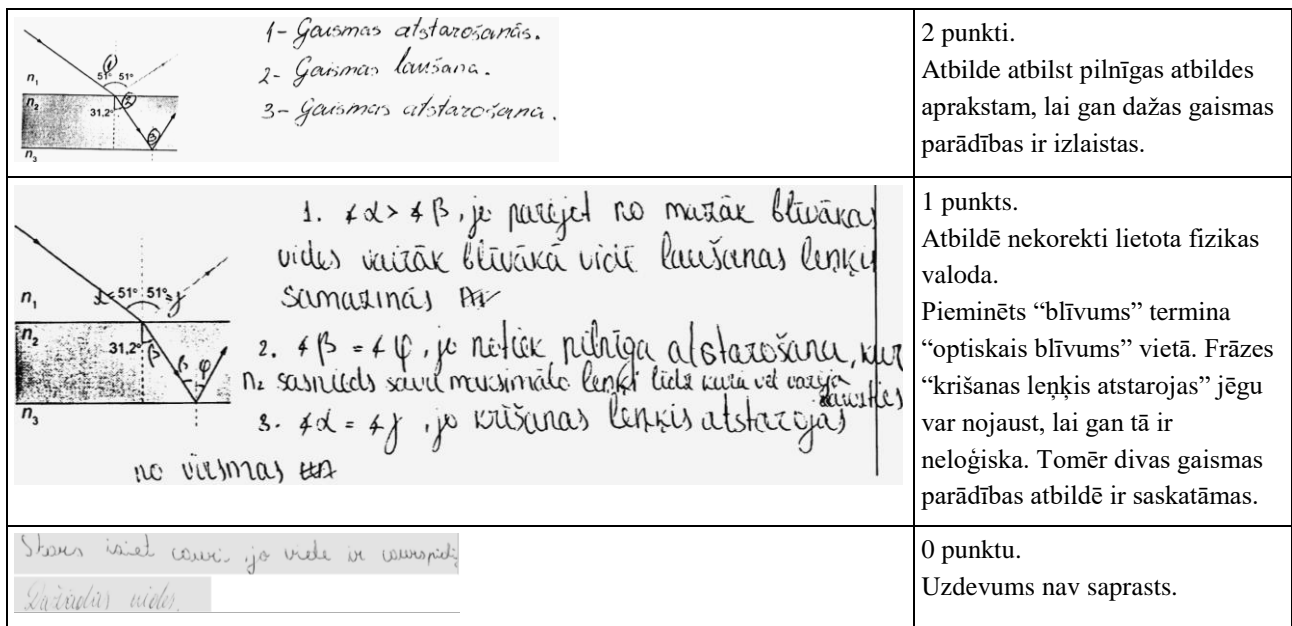 1- Gaismas atstarošanās.
2- Gaismas laušana.
3- Gaismas atstarošana.
1
51° 51°
n₁
n₂
2
31,2°
3
n₃
2 punkti.
Atbilde atbilst pilnīgas atbildes
aprakstam, lai gan dažas gaismas
parādības ir izlaistas.
1. ∢α > ∢β, jo parejot no mazāk blīvākas
vides vairāk blīvākā vidē laušanas leņķis
samazinās
α= 51° 51° =γ
n₁
n₂
31,2°
β
β φ
n₃
2. ∢β = ∢φ, jo notiek pilnīga atstarošana, kur
n₂ sasniedz savu maksimālo leņķi līdz kura vēl varēja
lauzties
3. ∢α = ∢γ, jo krišanas leņķis atstarojas
no virsmas
1 punkts.
Atbildē nekorekti lietota fizikas
valoda.
Pieminēts “blīvums” termina
“optiskais blīvums” vietā. Frāzes
“krišanas leņķis atstarojas” jēgu
var nojaust, lai gan tā ir
neloģiska. Tomēr divas gaismas
parādības atbildē ir saskatāmas.
Stars iziet cauri, jo vide ir
Dažādas vides.
0 punktu.
Uzdevums nav saprasts.